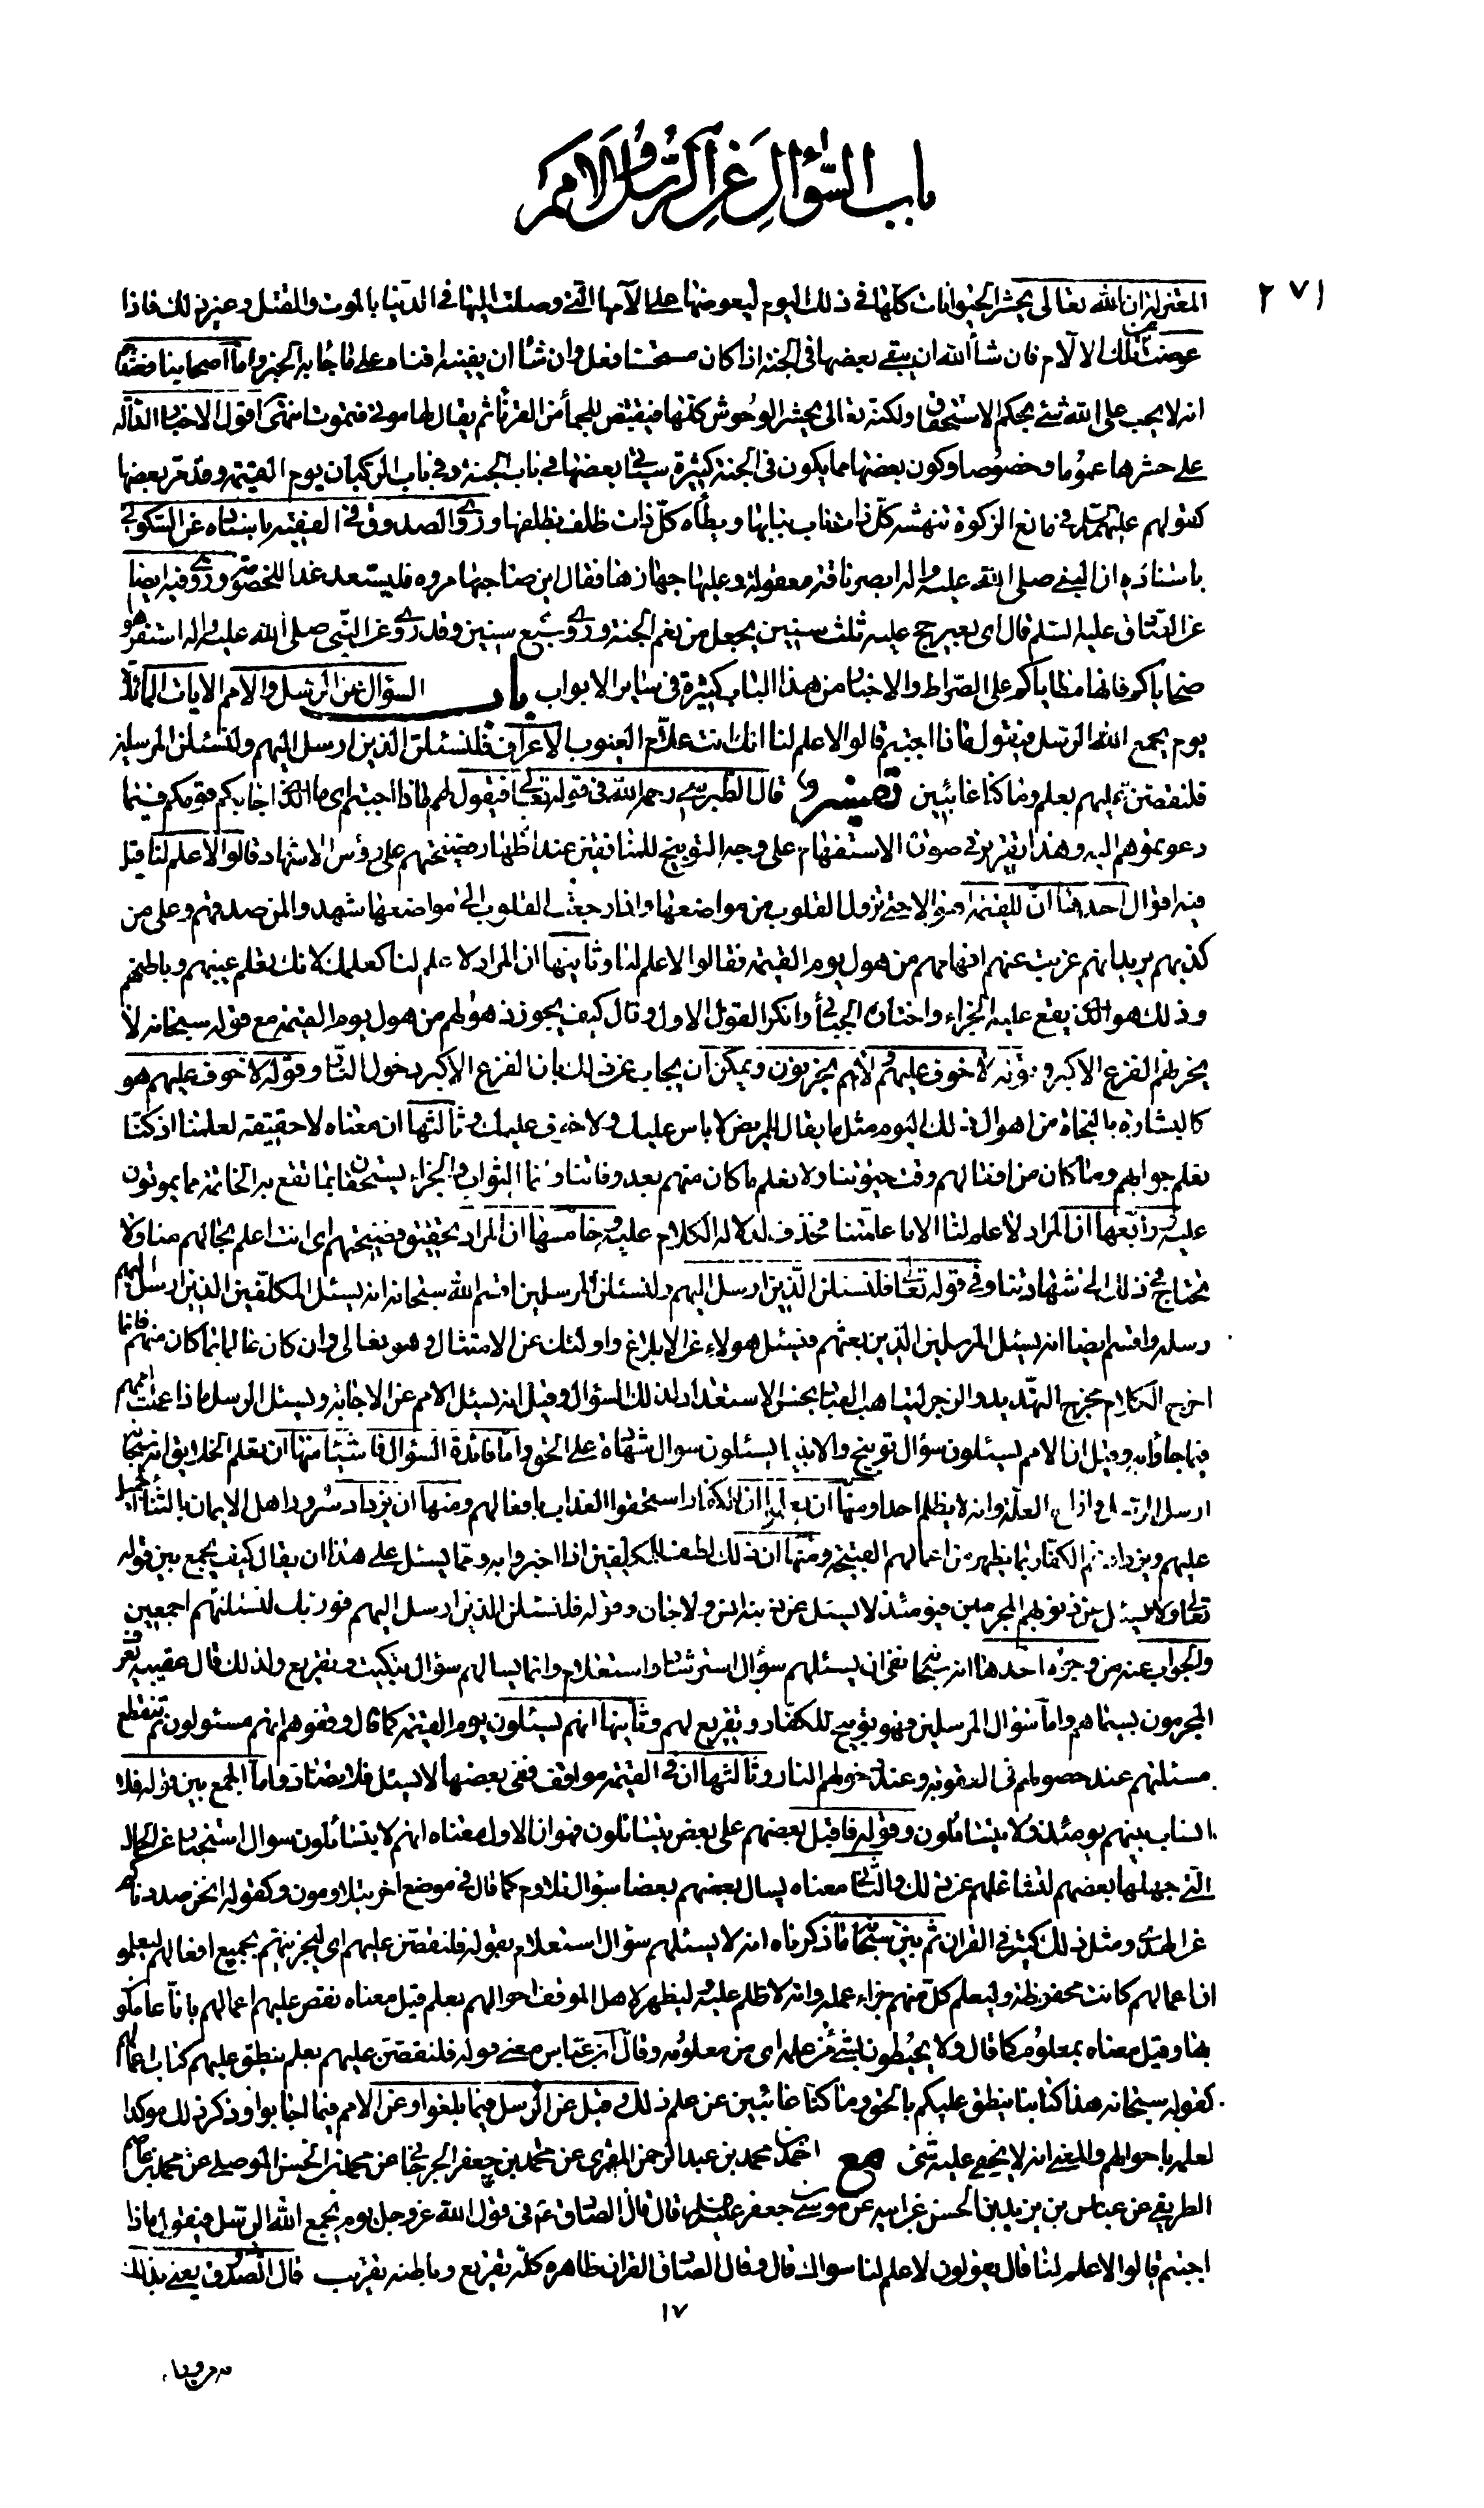 باب السؤال عن الرسل و الامم
٢٧١
المعتزلة ان الله تعالى يحشر الحيوانات كلها فى ذلك اليوم ليعوضها على الآمها التى وصلت اليها فى الدنيا بالموت والقتل و غير ذلك فاذا
عوضت عن تلك الالام فان شاء الله ان يبقى بعضها فى الجنة اذا كان مستحسنا فعل وان شاء ان يفنيه افناه على ما جاء به الخبر واما اصحابنا فعندهم
انه لا يجب على الله شئ بحكم الاستحقاق ولكنه تعالى يحشر الوحوش كلها فيقتص للجماء من القرناء ثم يقال لها موتى فتموت انتهى اقول الاخبار الدالة
على حشرها عموما وخصوصا وكون بعضها مما يكون فى الجنة كثيرة سيأتى بعضها فى باب الجنة وفى باب الركبان يوم القيمة وقد مر بعضها
كقولهم عليهم السلم فى مانع الزكوة تنهشه كل ذات ناب بنابها ويطأه كل ذات ظلف بظلفها وروى الصدوق فى الفقيه باسناده عن السكونى
باسناده ان النبى صلى الله عليه واله ابصر ناقة معقولة وعليها جهازها فقال اين صاحبها مروه فليستعد غدا للخصومة وروى فيه ايضا
عن الصادق عليه السلم قال اى بعير حج عليه ثلث سنين يجعل من نعم الجنة وروى سبع سنين وقد روى عن النبى صلى الله عليه واله استفرهوا
ضحاياكم فانها مطاياكم على الصراط والاخبار من هذا الباب كثيرة فى ساير الابواب باب السؤال عن الرسل والامم الايات المائدة
يوم يجمع الله الرسل فيقول ماذا اجبتم قالوا لا علم لنا انك انت علام الغيوب الاعراف فلنسئلن الذين ارسل اليهم ولنسئلن المرسلين
فلنقصن عليهم بعلم وما كنا غائبين تفسير قال الطبرسى رحمه الله فى قوله تعالى فيقول لهم ماذا اجبتم اى ما الذى اجابكم قومكم فيما
دعوتموهم اليه وهذا تقرير فى صورة الاستفهام على وجه التوبيخ للمنافقين عند اظهار فضيحتهم على رؤس الاشهاد قالوا لا علم لنا قيل
فيه اقوال احدها ان للقيمة اهوالا حتى تزول القلوب من مواضعها فاذا رجعت القلوب الى مواضعها شهدوا لمن صدقهم وعلى من
كذبهم يريد انهم عزبت عنهم افهامهم من هول يوم القيمة فقالوا لا علم لنا وثانيها ان المراد لا علم لنا كعلمك لانك تعلم غيبهم وباطنهم
وذلك هو الذى يقع عليه الجزاء واختاره الجبائى وانكر القول الاول وقال كيف يجوز ذهولهم من هول يوم القيمة مع قوله سبحانه لا
يحزنهم الفزع الاكبر وقوله لا خوف عليهم ولا هم يحزنون ويمكن ان يجاب عن ذلك بان الفزع الاكبر دخول النار وقوله لا خوف عليهم هو
كالبشارة بالنجاة من اهوال ذلك اليوم مثل ما يقال للمريض لا باس عليك ولا خوف عليك وثالثها ان معناه لا حقيقة لعلمنا اذ كنا
نعلم جوابهم وما كان من افعالهم وقت حيوتنا ولا نعلم ما كان منهم بعد وفاتنا وانما الثواب والجزاء يستحقان بما تقع به الخاتمة مما يموتون
عليه ورابعها ان المراد لا علم لنا الا ما علمتنا فحذف لدلالة الكلام عليه وخامسها ان المراد تحقيق فضيحتهم اى انت اعلم بحالهم منا ولا
تحتاج فى ذلك الى شهادتنا وفى قوله تعالى فلنسئلن الذين ارسل اليهم ولنسئلن المرسلين اقسم الله سبحانه انه يسئل المكلفين الذين ارسل اليهم
رسله واقسم ايضا انه يسئل المرسلين الذين بعثهم فيسئل هولاء عن الابلاغ واولئك عن الامتثال وهو تعالى وان كان عالما بما كان منهم فانما
اخرج الكلام مخرج التهديد والزجر ليتاهب العباد بحسن الاستعداد لذلك السؤال وقيل انه يسئل الامم عن الاجابة ويسئل الرسل ماذا عملت اممهم
فيما جاؤا به وقيل ان الامم يسئلون سؤال توبيخ والانبياء يسئلون سوال شهادة على الحق واما فائدة السؤال فاشياء منها ان تعلم الخلايق انه سبحانه
ارسل الرسل وازاح العلة وانه لا يظلم احدا ومنها ان يعلموا ان الكفار استحقوا العذاب بافعالهم ومنها ان يزداد سرور اهل الايمان بالثناء الجميل
عليهم ويزداد غم الكفار بما يظهر من اعمالهم القبيحة ومنها ان ذلك لطف للمكلفين اذا اخبروا به ومما يسئل على هذا ان يقال كيف يجمع بين قوله
تعالى ولا يسئل عن ذنوبهم المجرمون فيومئذ لا يسئل عن ذنبه انس ولا جان وقوله فلنسئلن الذين ارسل اليهم فوربك لنسئلنهم اجمعين
والجواب عنه من وجوه احدها انه سبحانه نفى ان يسئلهم سؤال استرشاد واستعلام وانما يسالهم سؤال تبكيت وتقريع ولذلك قال عقيبه يعرف
المجرمون بسيماهم واما سؤال المرسلين فهو توبيخ للكفار وتقريع لهم وثانيها انهم يسئلون يوم القيمة كما قال وقفوهم انهم مسئولون ثم تنقطع
مسئلتهم عند حصولهم فى العقوبة وعند دخولهم النار وثالثها ان فى القيمة مواقف ففى بعضها لا يسئل فلا تضاد واما الجمع بين قوله فلا
انساب بينهم يومئذ ولا يتسائلون وقوله فاقبل بعضهم على بعض يتسائلون فهو ان الاول معناه انهم لا يتسائلون سوال استخبار عن الحال
التى جهلها بعضهم لتشاغلهم عن ذلك والثانى معناه يسال بعضهم بعضا سؤال تلاوم كما قال فى موضع اخر يتلاومون وكقوله انحن صددناكم
عن الهدى ومثل ذلك كثير فى القران ثم بين سبحانه ما ذكرناه انه لا يسئلهم سؤال استعلام بقوله فلنقصن عليهم اى لنخبرنهم بجميع افعالهم ليعلموا
ان اعمالهم كانت محفوظة وليعلم كل منهم جزاء عمله وانه لا ظلم عليه وليظهر لاهل الموقف احوالهم بعلم قيل معناه نقص عليهم اعمالهم بانا عالمون
بها وقيل معناه بمعلوم كما قال ولا يحيطون بشئ من علمه اى من معلومه وقال ابن عباس معنى قوله فلنقصن عليهم بعلم ينطق عليهم كتاب اعمالهم
كقوله سبحانه هذا كتابنا ينطق عليكم بالحق وما كنا غائبين عن علم ذلك وقيل عن الرسل فيما بلغوا وعن الامم فيما اجابوا وذكر ذلك موكدا
لعلمه باحوالهم والمعنى انه لا يخفى عليه شئ مع احمد بن محمد بن عبد الرحمن المقرى عن محمد بن جعفر الجرجانى عن محمد بن الحسن الموصلى عن محمد بن عاصم
الطريفى عن عياش بن يزيد بن الحسن عن ابيه عن موسى بن جعفر عليه السلم قال قال الصادق ع فى قول الله عز وجل يوم يجمع الله الرسل فيقول ماذا
اجبتم قالوا لا علم لنا قال يقولون لا علم لنا سواك قال وقال الصادق القران ظاهره كله تقريع وباطنه تقريب قال الصدوق يعنى بذلك
١٧